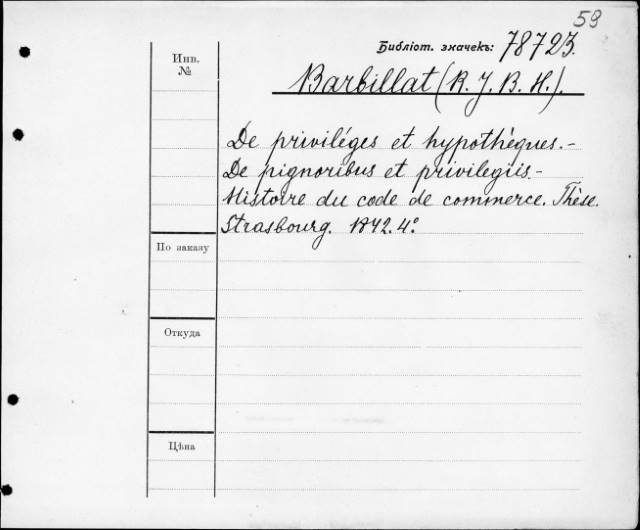 59
Библіот. значекъ: 78723.
Инв. №
Barbillat (R. J. B. H.).
De priviléges et hypothèques. -
De pignoribus et privilegiis. -
Histoire du code de commerce. Thèse.
Strasbourg. 1842. 4°
По заказу
Откуда
Цѣна